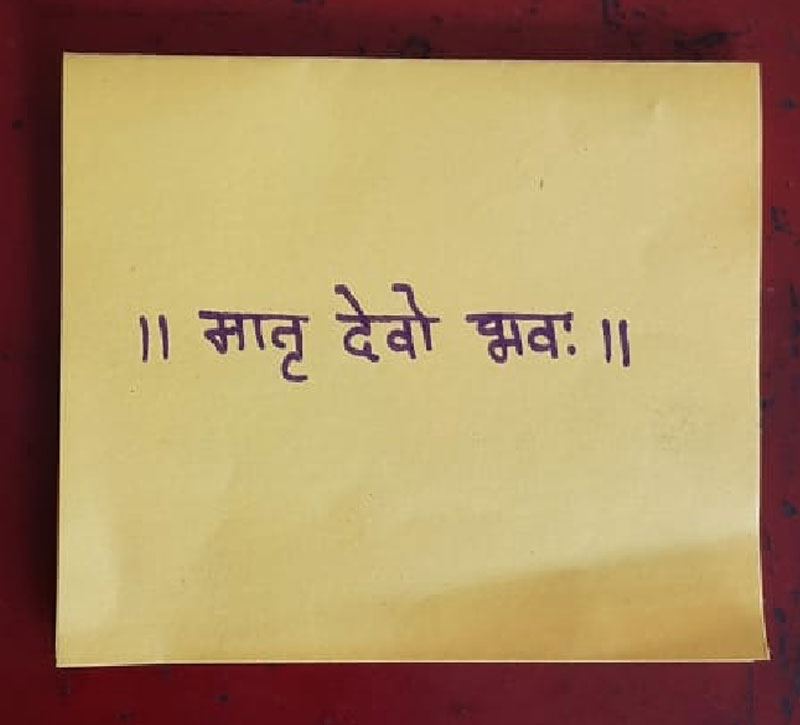 ॥ मातृ देवो भवः ॥